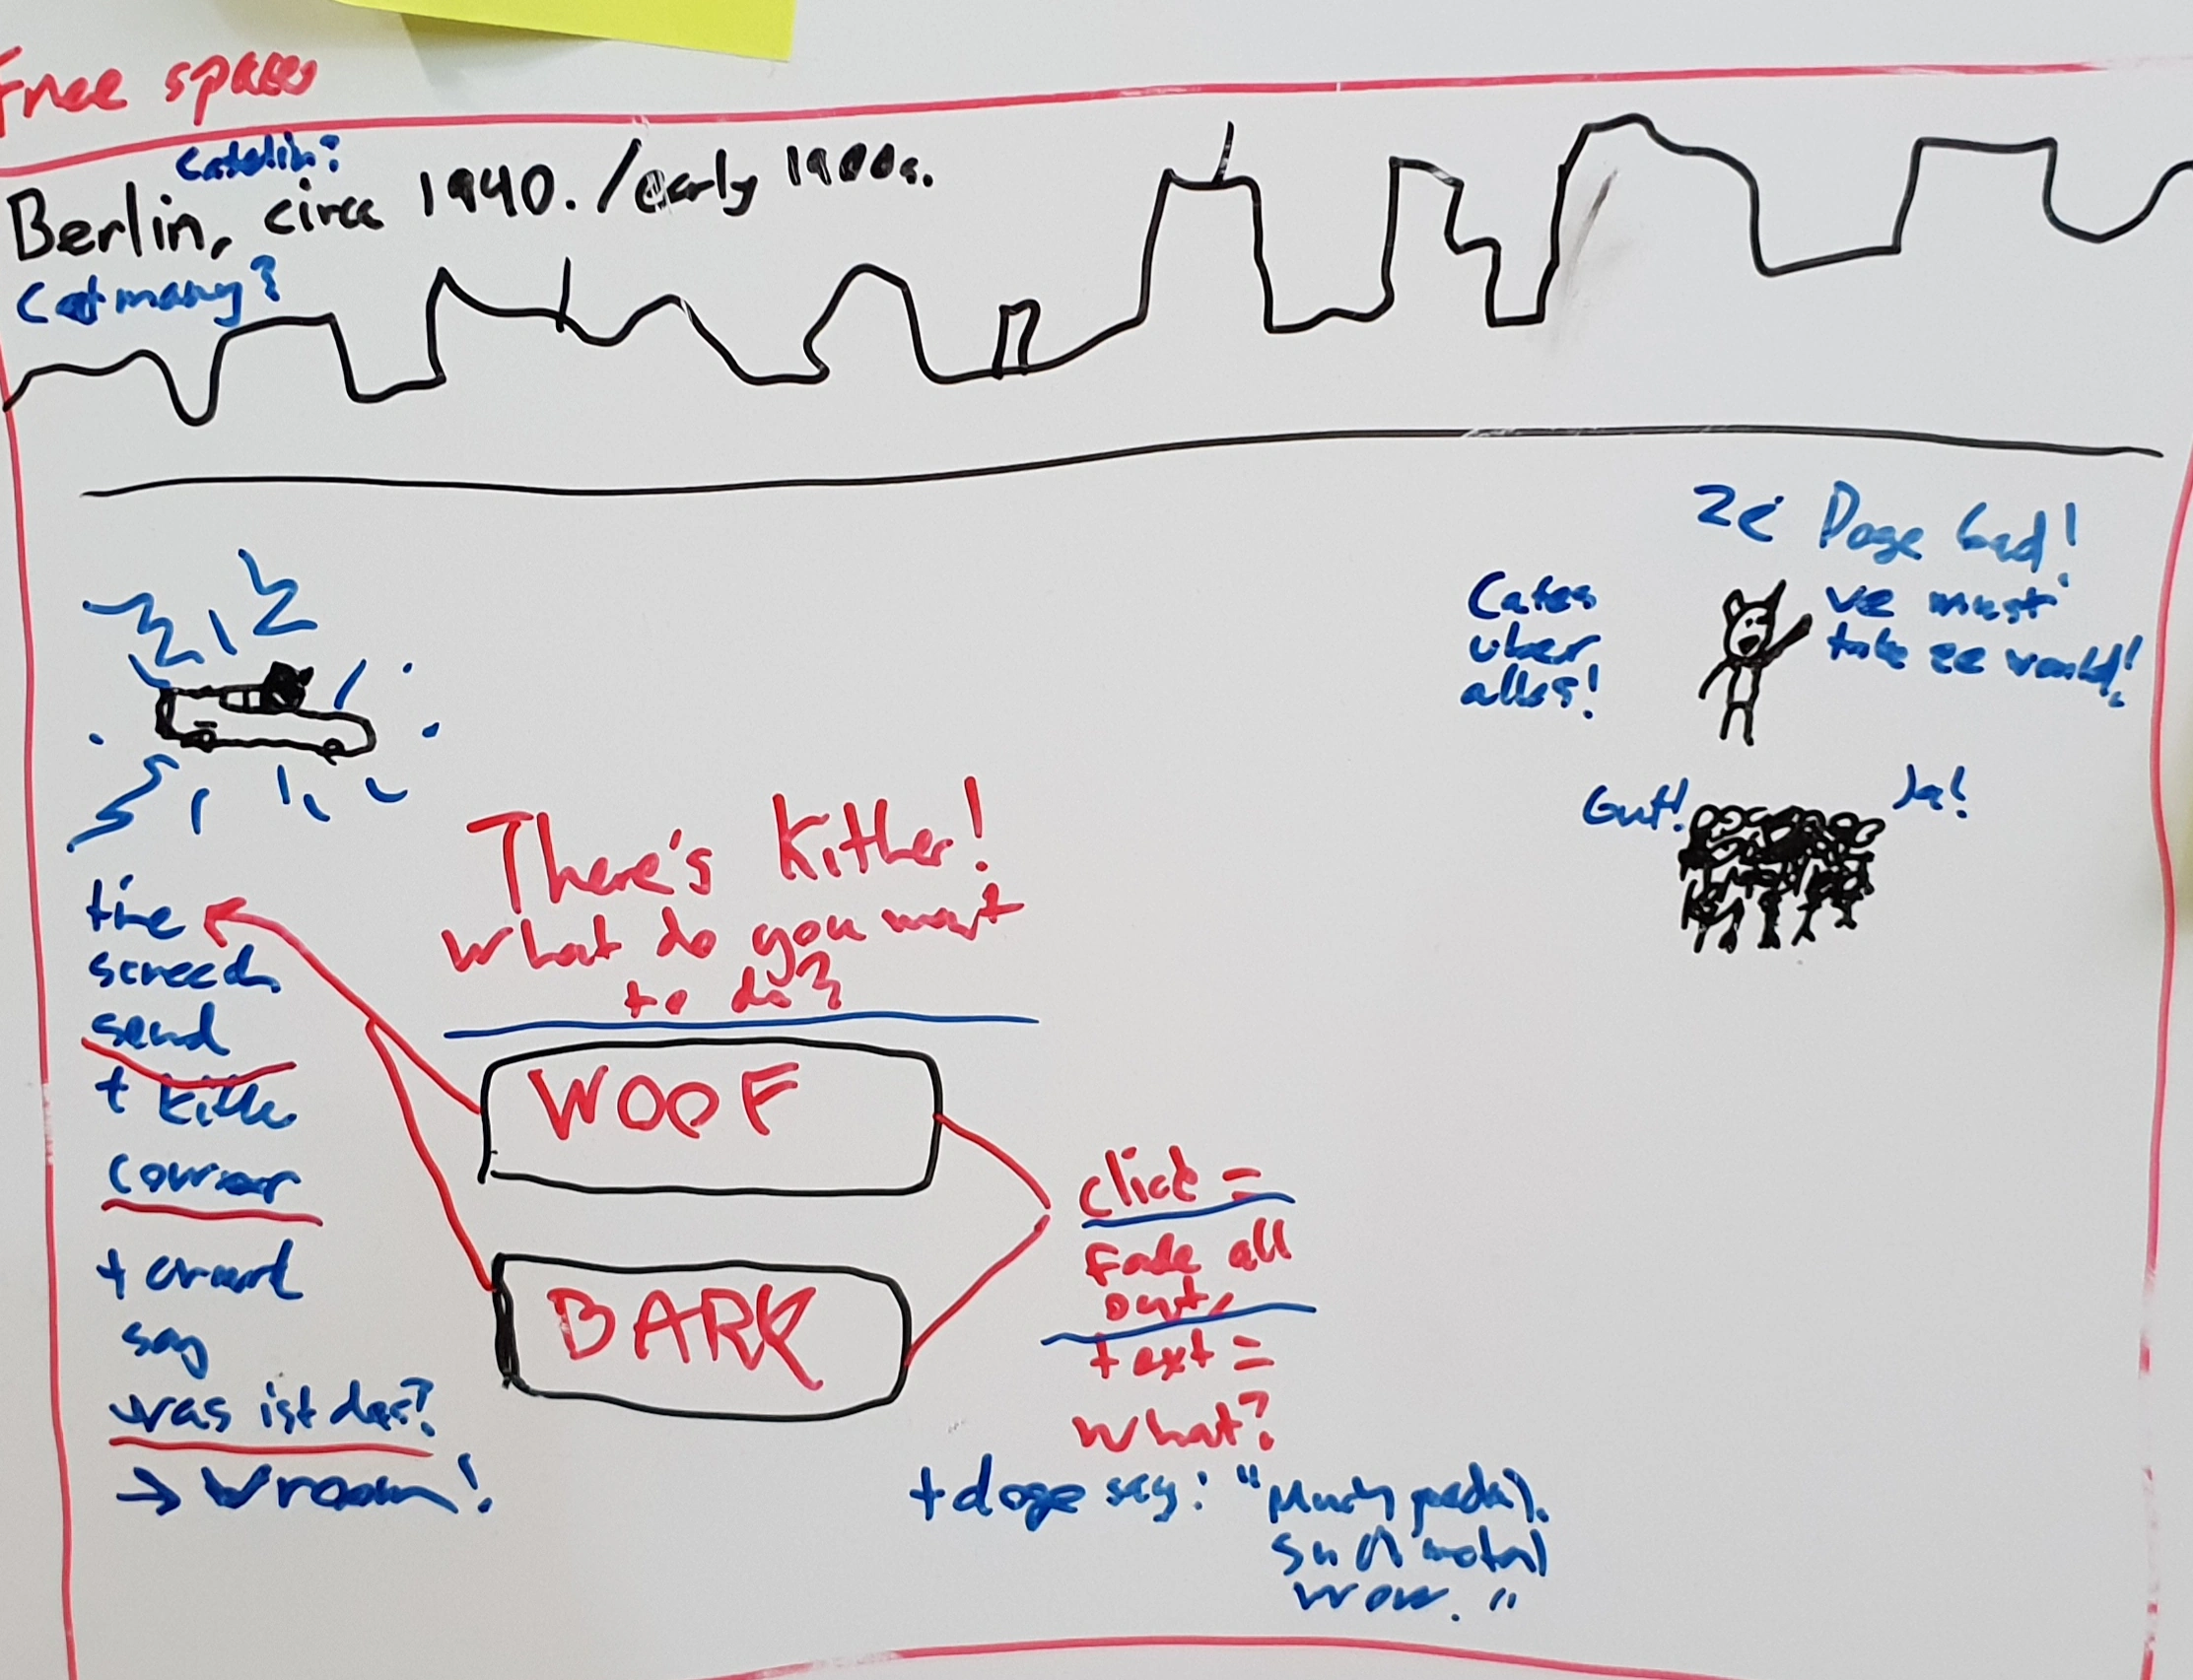 Free space
Catelin?
Berlin, circa 1940. /early 1900s.
Catmany?
Ze Doge bad!
Cates
uber
alles!
ve must
take ze vorld!
Gut!
Ja!
There's Kitler!
What do you want
to do?
tire
screech
send
+ Kitler
cower
+ crowd
say
was ist das?
→ Vroom!
WOOF
BARK
click =
Fade all
out,
text =
What?
+ doge say: "Much pedal.
Such
wow."